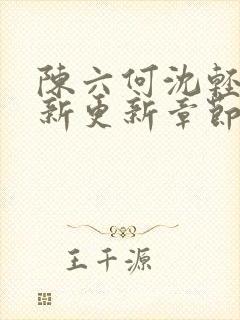 陳六何沈輕
新更新章節
王千源